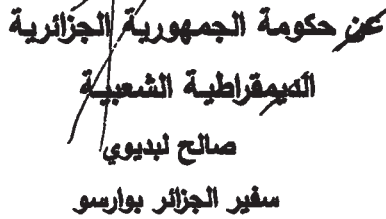 عن حكومة الجمهورية الجزائرية
الديمقراطية الشعبية
صالح لبديوي
سفير الجزائر بوارسو